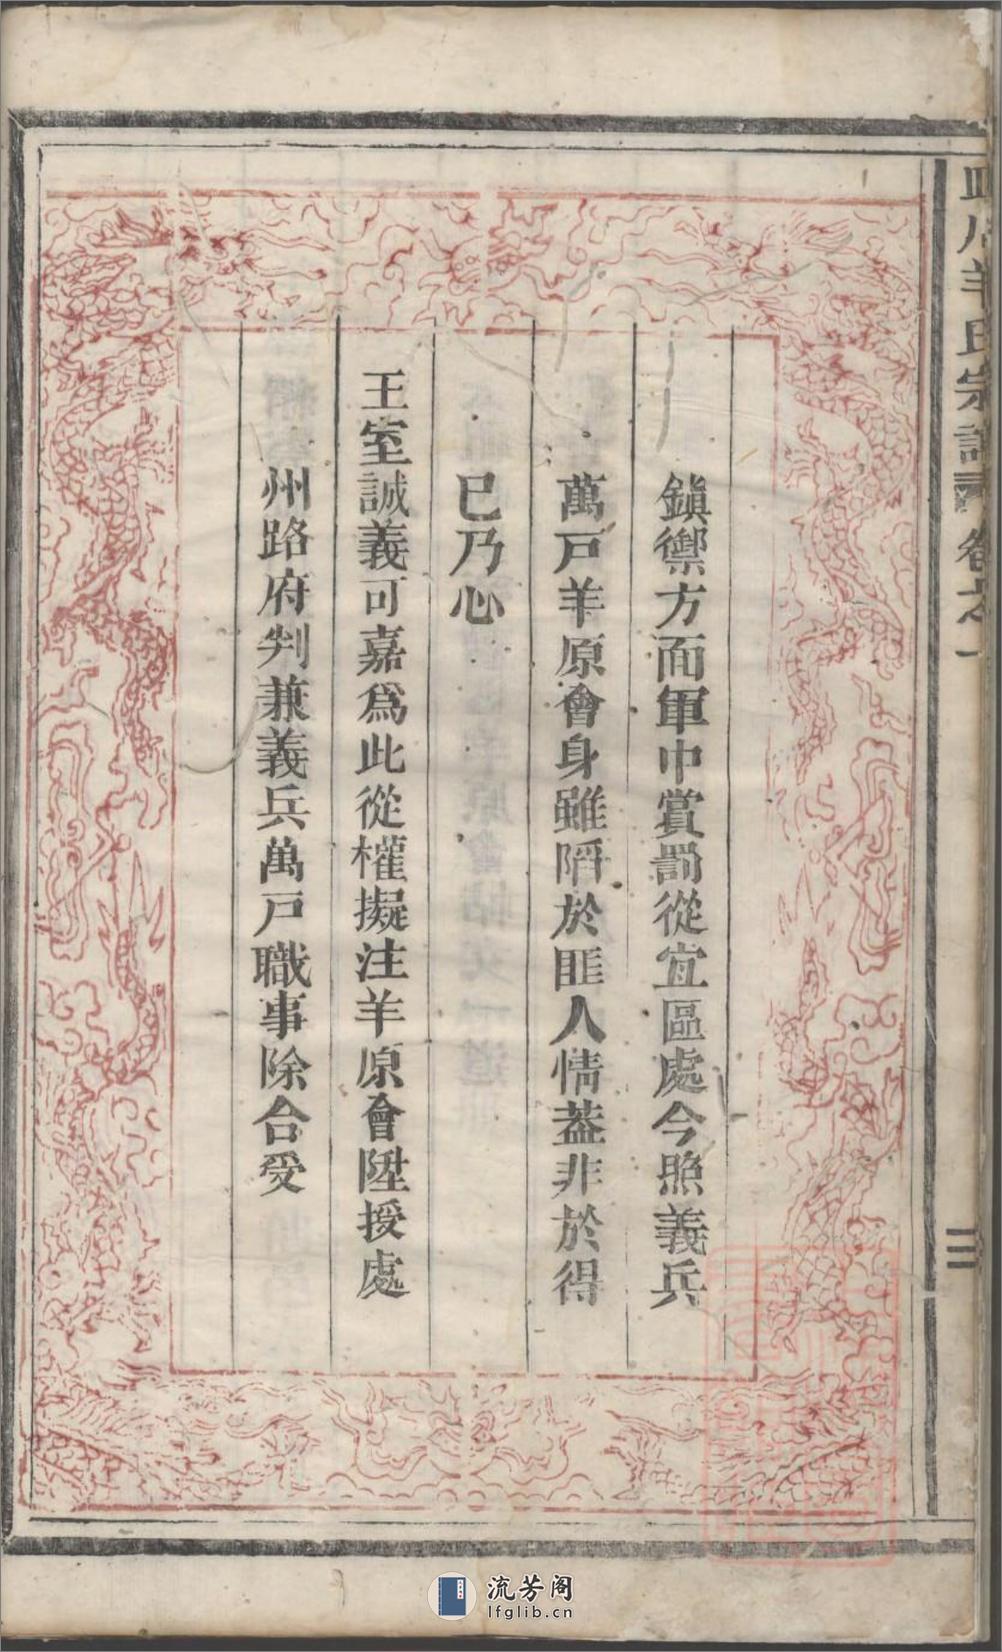 鎮禦方面軍中賞罰從宜區處今照義兵
萬戸羊原會身雖陷於匪人情葢非於得
已乃心
王室誠義可嘉爲此從權擬注羊原會陞授處
州路府判兼義兵萬戸職事除合受
羊氏宗譜
卷之一
三
流芳阁
lfglib.cn